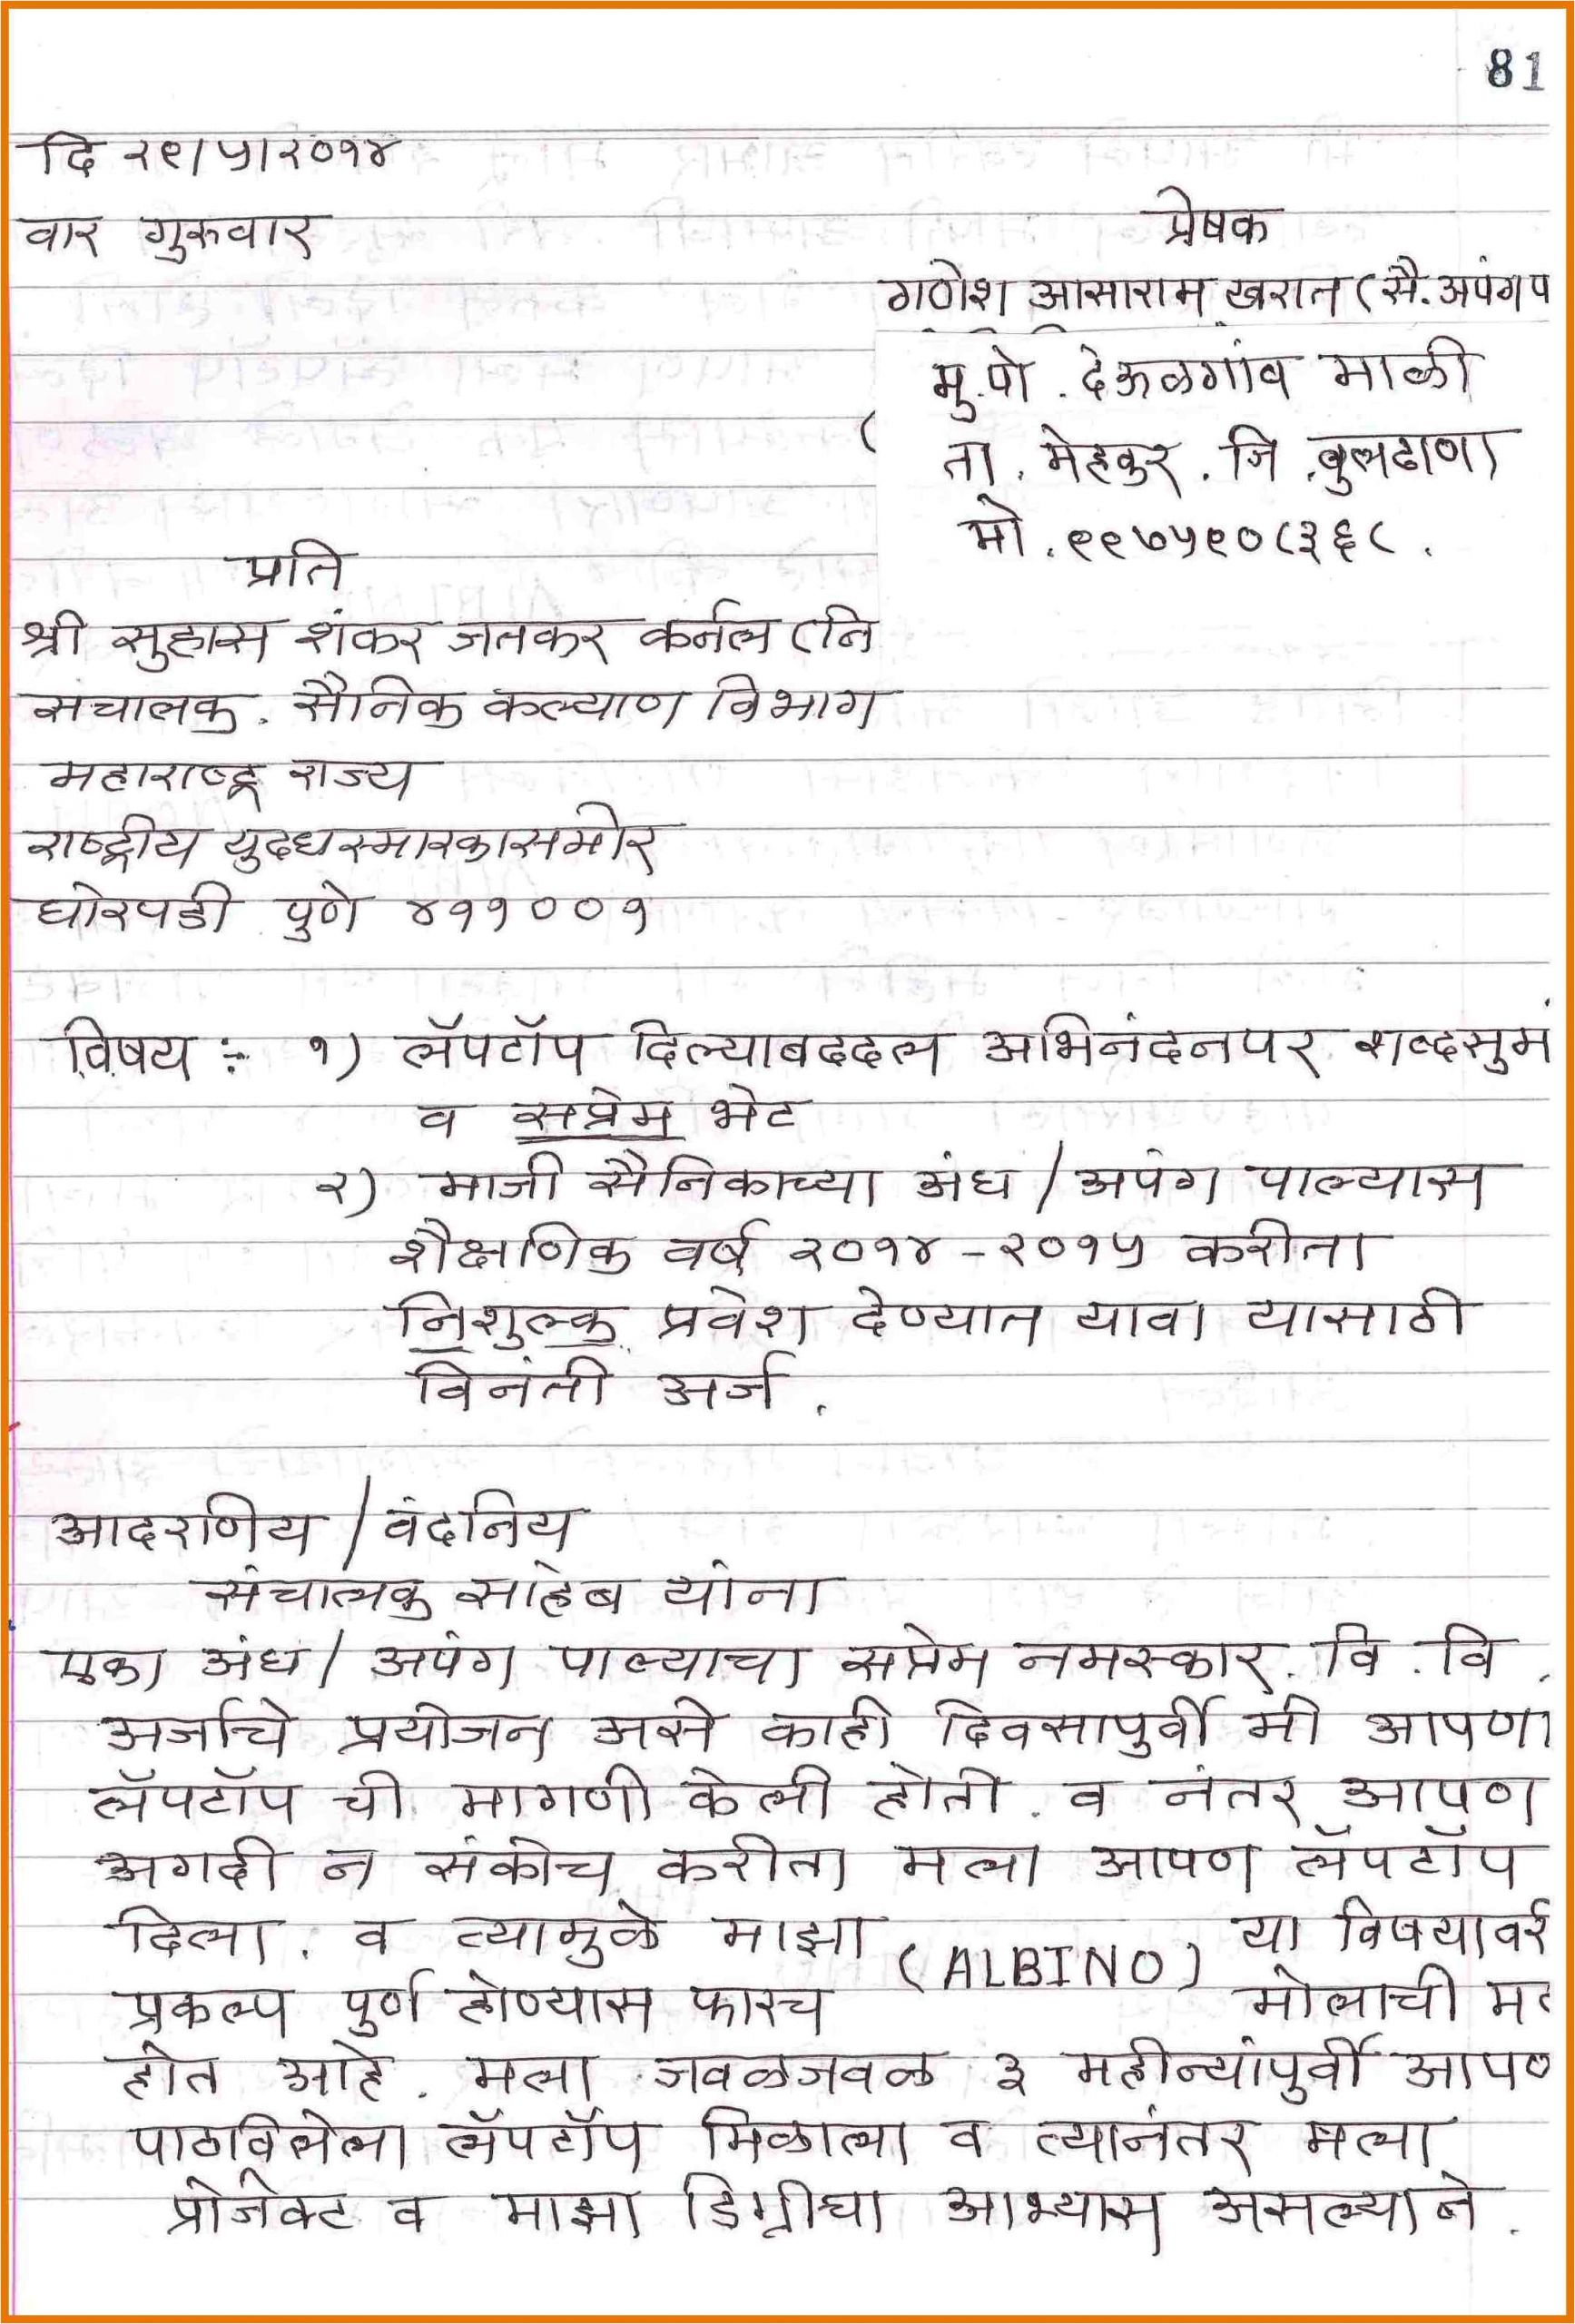 81
दि २९/५/२०१४
वार गुरुवार
प्रेषक
गणेश आसाराम खरात (सै. अपंग प
मु.पो. देऊळगांव माळी
(
ता. मेहकुर. जि. बुलढाणा
मो. ९९७५९०८३६८.
प्रति
श्री सुहास शंकर जतकर कर्नल (नि
संचालक. सैनिक कल्याण विभाग
महाराष्ट्र राज्य
राष्ट्रीय युद्धस्मारकासमोर
घोरपडी पुणे ४११००१
विषय :- १) लॅपटॉप दिल्याबद्दल अभिनंदनपर शब्दसुमं
व सप्रेम भेट
२) माजी सैनिकाच्या अंध / अपंग पाल्यास
शैक्षणिक वर्ष २०१४ - २०१५ करीता
निशुल्क प्रवेश देण्यात यावा यासाठी
विनंती अर्ज.
आदरणिय / वंदनिय
संचालक साहेब यांना
एका अंध / अपंग पाल्याचा सप्रेम नमस्कार. वि. वि.
अर्जाचे प्रयोजन असे काही दिवसापुर्वी मी आपणा
लॅपटॉप ची मागणी केली होती. व नंतर आपण
अगदी न संकोच करीता मला आपण लॅपटॉप
दिला. व त्यामुळे माझा (ALBINO) या विषयावर
प्रकल्प पुर्ण होण्यास फारच मोलाची मद
होत आहे. मला जवळजवळ ३ महीन्यांपुर्वी आपण
पाठविलेला लॅपटॉप मिळाला व त्यानंतर मला
प्रोजेक्ट व माझा डिग्रीचा आभ्यास असल्याने.